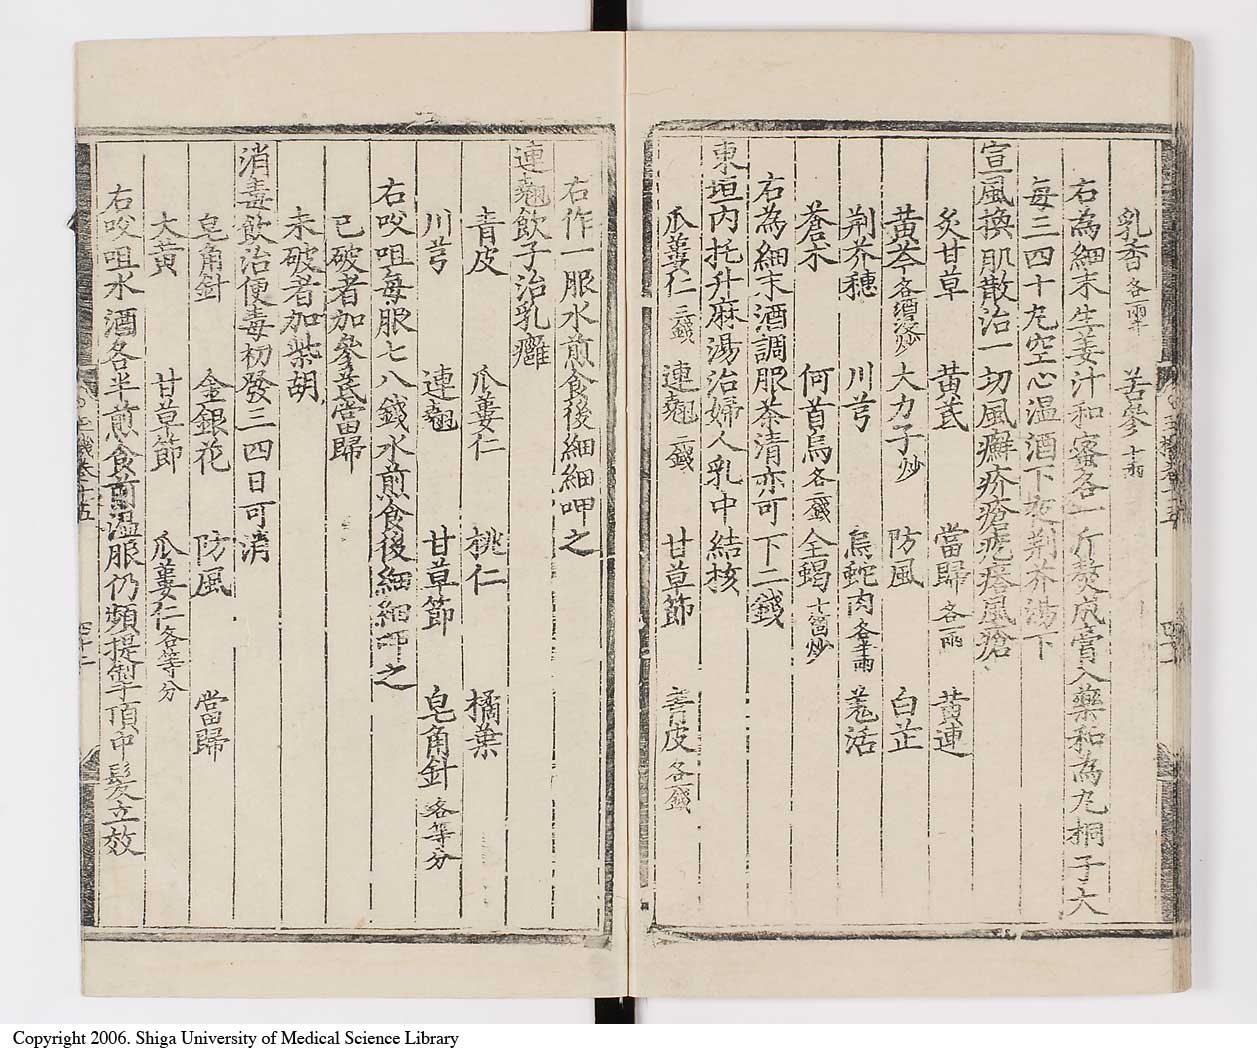 乳香各一兩半 苦參十兩
右為細末生姜汁和蜜各一斤熬成膏入藥和為丸桐子大
每三四十丸空心温酒下夜荆芥湯下
宣風換肌散治一切風癬疥瘡疙瘩風瘡
炙甘草 黄芪 當歸各一兩 黄連
黄芩各酒浸炒 大力子炒 防風 白芷
荆芥穗 川芎 烏蛇肉各半兩 羗活
蒼朮 何首烏各二錢 全蝎十箇炒
右為細末酒調服茶清亦可下二錢
東垣内托升麻湯治婦人乳中結核
瓜蔞仁三錢 連翹二錢 甘草節 青皮各一錢
右作一服水煎食後細細呷之
連翹飲子治乳癰
青皮 瓜蔞仁 桃仁 橘葉
川芎 連翹 甘草節 皂角針各等分
右㕮咀每服七八錢水煎食後細細呷之
已破者加參芪當歸
未破者加柴胡
消毒飲治便毒初發三四日可消
皂角針 金銀花 防風 當歸
大黄 甘草節 瓜蔞仁各等分
右㕮咀水酒各半煎食前温服仍頻提掣頂中髮立效
Copyright 2006. Shiga University of Medical Science Library